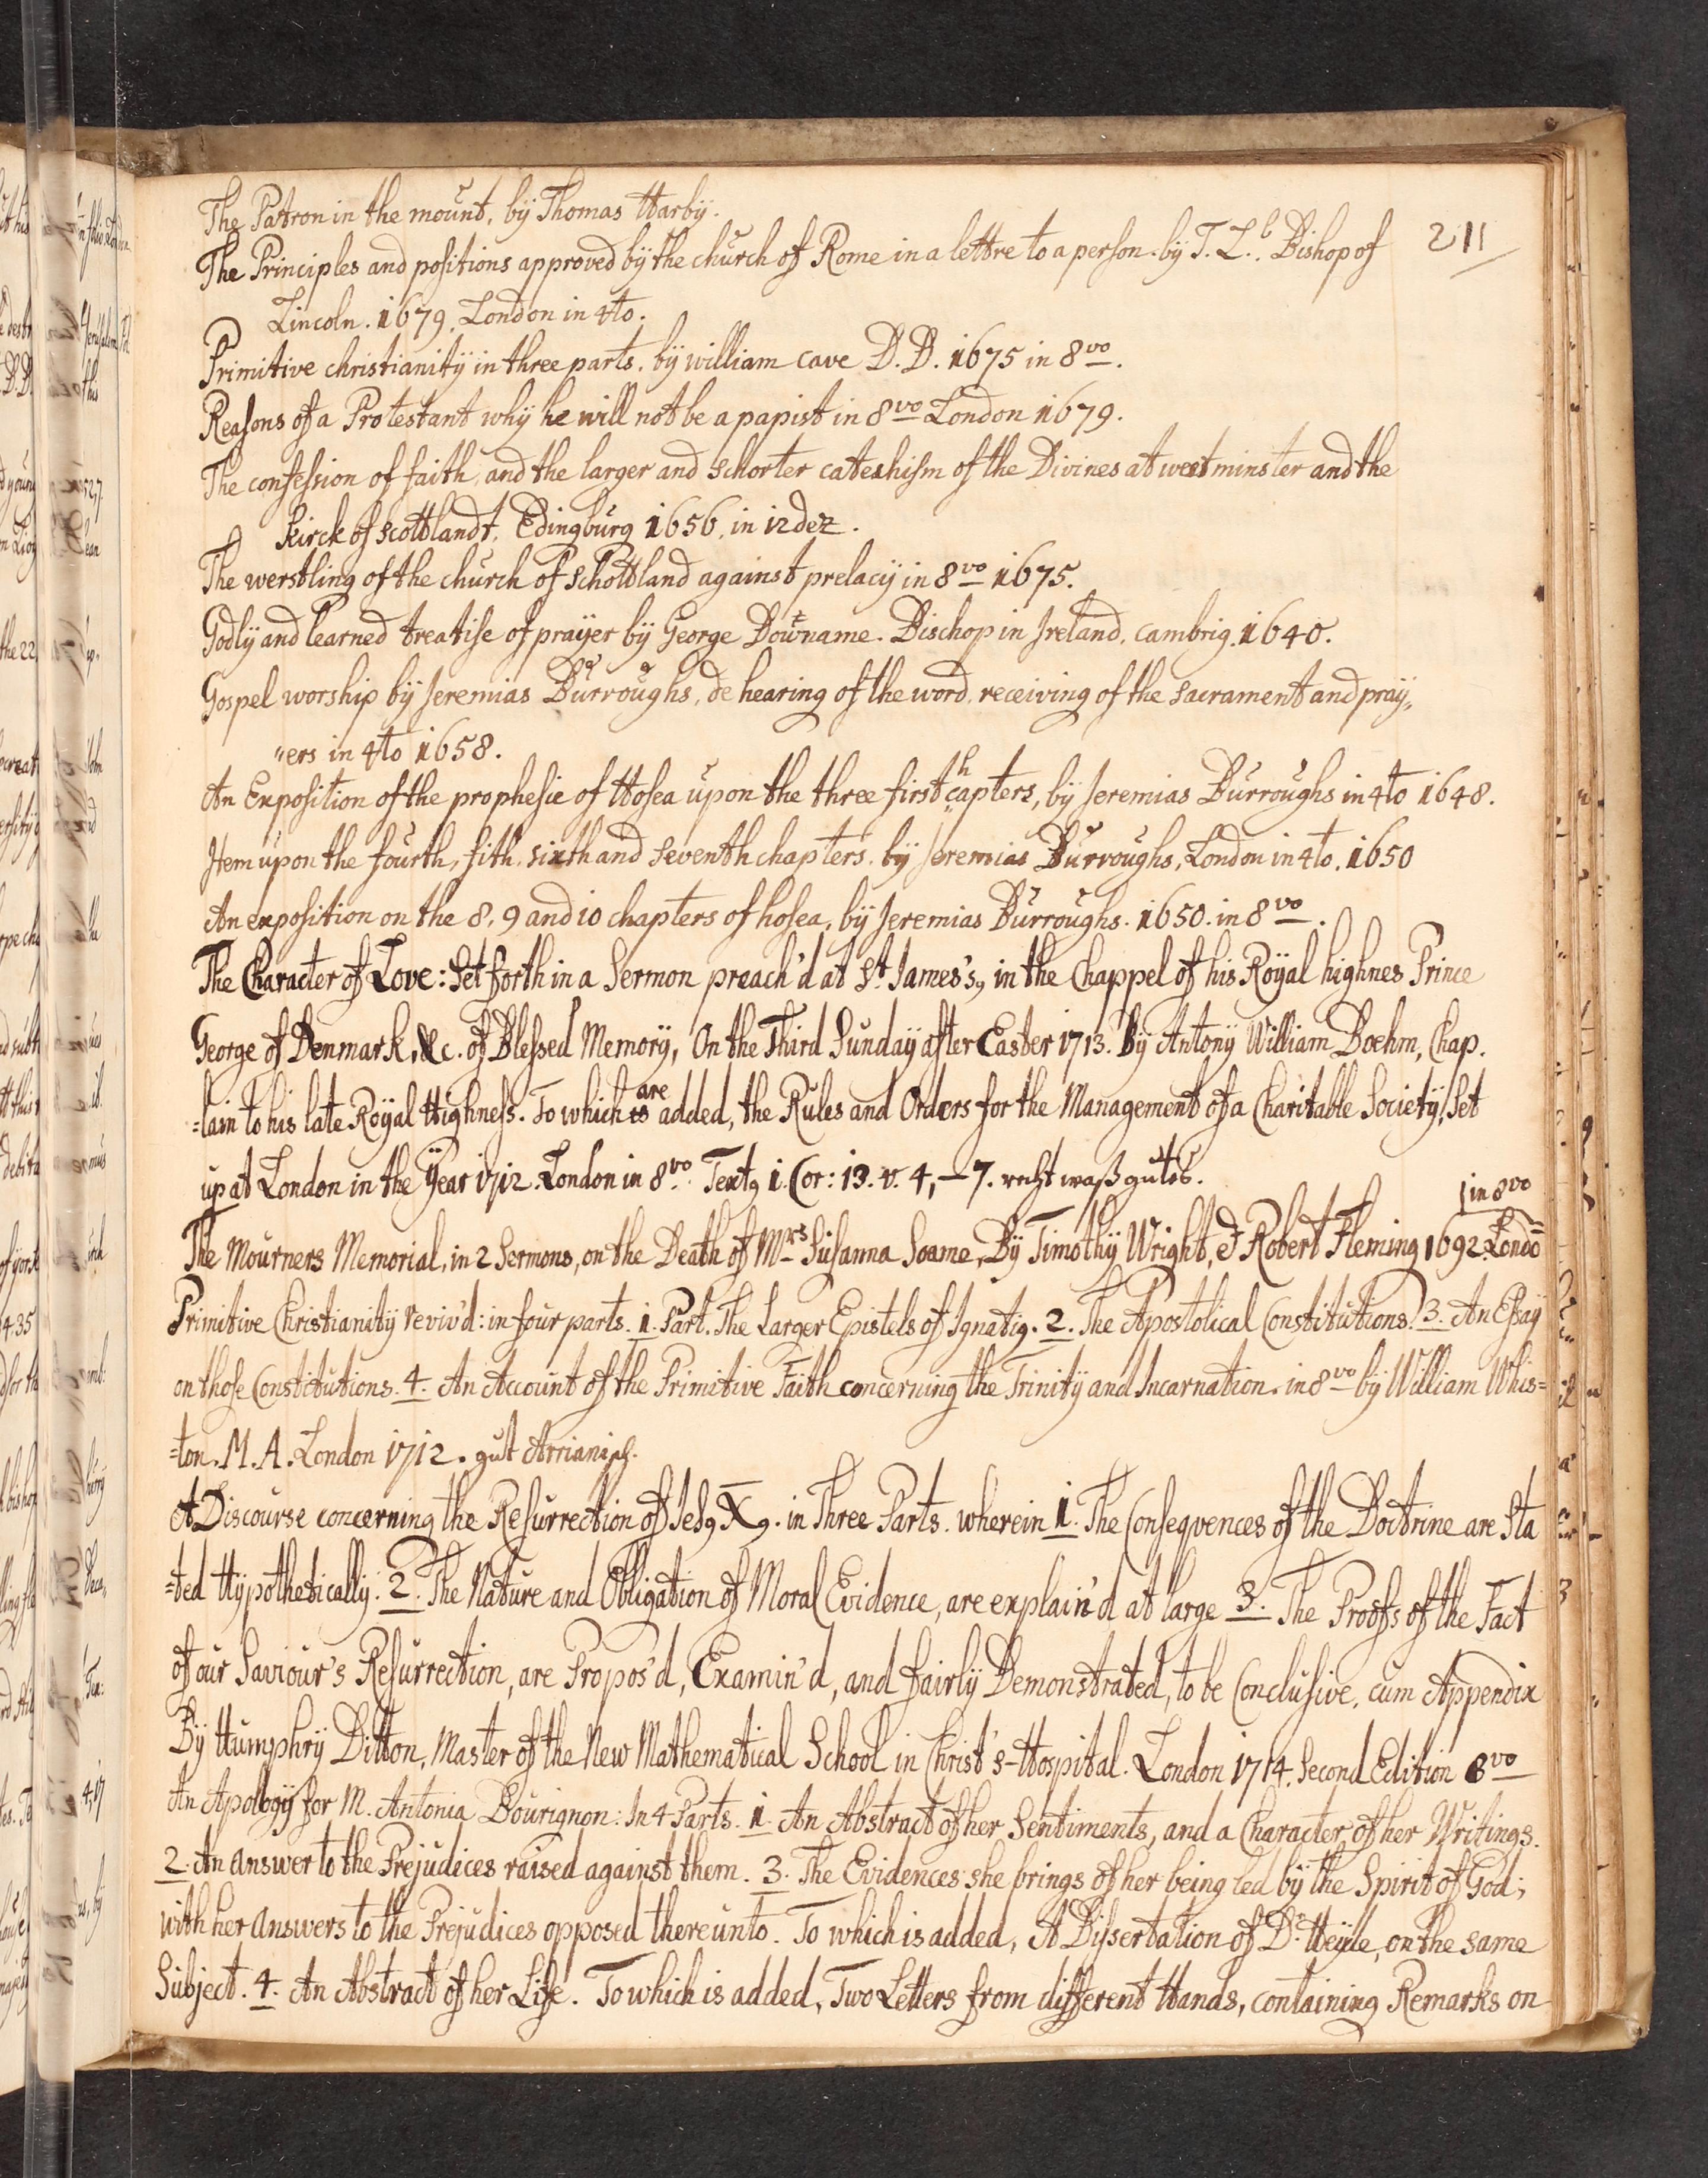 The Patron in the mount, by Thomas Harby.
211
The Principles and positions approved by the church of Rome in a lettre to a person. by T. L. Bishop of
Lincoln. 1679. London in 4to.
Primitive christianity in three parts. by william cave D. D. 1675 in 8vo.
Reasons of a Protestant why he will not be a papist in 8vo London 1679.
The confession of faith, and the larger and schorter cateshism of the Divines at westminster and the
kirck of scottlandt. Edingburg 1656. in 12dez.
The werstling of the church of schottland against prelacy in 8vo 1675.
Godly and learned treatise of prayer by George Downame. Bischop in Ireland. cambrig. 1640.
Gospel worship by Jeremias Burroughs, de hearing of the word, receiving of the sacrament and pray„
„ers in 4to 1658.
An Exposition of the prophesie of Hosea upon the three first chapters, by Jeremias Burroughs in 4to 1648.
Item upon the fourth, fith, sixth and seventh chapters. by Jeremias Burroughs, London in 4to. 1650
An exposition on the 8, 9 and 10 chapters of hosea, by Jeremias Burroughs. 1650. in 8vo.
The Character of Love: Set forth in a Sermon preach'd at St. James's, in the Chappel of his Royal highnes Prince
George of Denmark, &c. of Blessed Memory, On the Third Sunday after Easter 1713. By Antony William Boehm, Chap.
=lain to his late Royal Highness. To which is are added, the Rules and Orders for the Management of a Charitable Society, Set
up at London in the Year 1712. London in 8vo. Text, 1. Cor: 13. v. 4,–7. recht waß gutes.
in 8vo
The Mourners Memorial, in 2 Sermons, on the Death of Mrs Susanna Soame, By Timothy Wright, & Robert Fleming 1692. Londō
Primitive Christianity reviv'd: in four parts. 1. Part. The Larger Epistels of Ignatig. 2. The Apostolical Constitutions. 3. An Essay
on those Constitutions. 4. An Account of the Primitive Faith concerning the Trinity and Incarnation. in 8vo by William Whis=
=ton. M. A. London 1712. gut Arrianisch.
A Discourse concerning the Resurrection of Jes9 X9. in Three Parts. wherein 1. The Conseqvences of the Doctrine are Sta
=ted Hypothetically. 2. The Nature and Obligation of Moral Evidence, are explain'd at large 3. The Proofs of the Fact
of our Saviour's Resurrection, are Propos'd, Examin'd, and fairly Demonstrated, to be Conclusive. cum Appendix
By Humphry Ditton, Master of the New Mathematical School in Christ's-Hospital. London 1714. Second Edition 8vo
An Apology for M. Antonia Bourignon: In 4 Parts. 1. An Abstract of her Sentiments, and a Character of her Writings.
2. An answer to the Prejudices raised against them. 3. The Evidences she brings of her being led by the Spirit of God;
with her answers to the Prejudices opposed thereunto. To which is added, A Dissertation of Dr. Heyle, on the same
Subject. 4. An Abstract of her Life. To which is added, Two Letters from different Hands, containing Remarks on